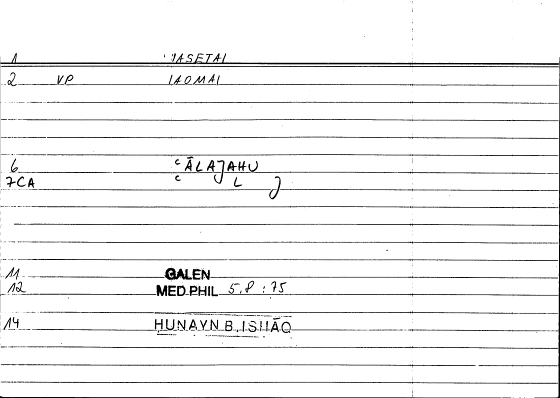 1 ἸASETAI
2 VP IAOMAI
6 ʿĀLAJAHU
7CA ʿ L J
11 GALEN
12 MED.PHIL 5,8 : 75
14 HUNAYN B. ISHĀQ